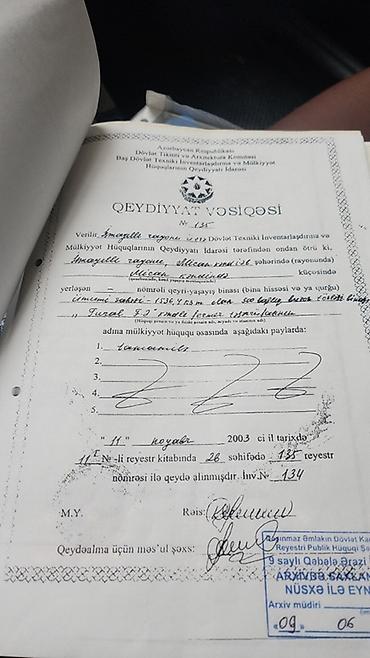 Azərbaycan Respublikası
Dövlət Tikinti və Arxitektura Komitəsi
Baş Dövlət Texniki İnventarlaşdırma və Mülkiyyət
Hüquqlarının Qeydiyyatı İdarəsi
QEYDİYYAT VƏSİQƏSİ
№ 135
Verilir İsmayıllı rayonu Dövlət Texniki İnventarlaşdırma və
Mülkiyyət Hüquqlarının Qeydiyyatı İdarəsi tərəfindən ondan ötrü ki,
İsmayıllı rayonu, Mican kəndi şəhərində (rayonunda)
Mican kəndində küçəsində
yerləşən – nömrəli qeyri-yaşayış binası (bina hissəsi və ya qurğu)
ümumi sahəsi - 1536,4 olan 500
adına mülkiyyət hüququ əsasında aşağıdakı paylarda:
1. tamamilə
2.
3.
4.
5.
" 11 " noyabr 2003 cü il tarixdə
11 № -li reyestr kitabında 26 səhifədə 135 reyestr
nömrəsi ilə qeydə alınmışdır. İnv.№ 134
M.Y. Rəis:
Qeydəalma üçün məs'ul şəxs:
Daşınmaz Əmlakın Dövlət
Reyestri Publik Hüquqi
9 saylı Qəbələ Ərazi
ARXİVDƏ SAXLAN
NÜSXƏ İLƏ EYN
Arxiv müdiri
«09» 06